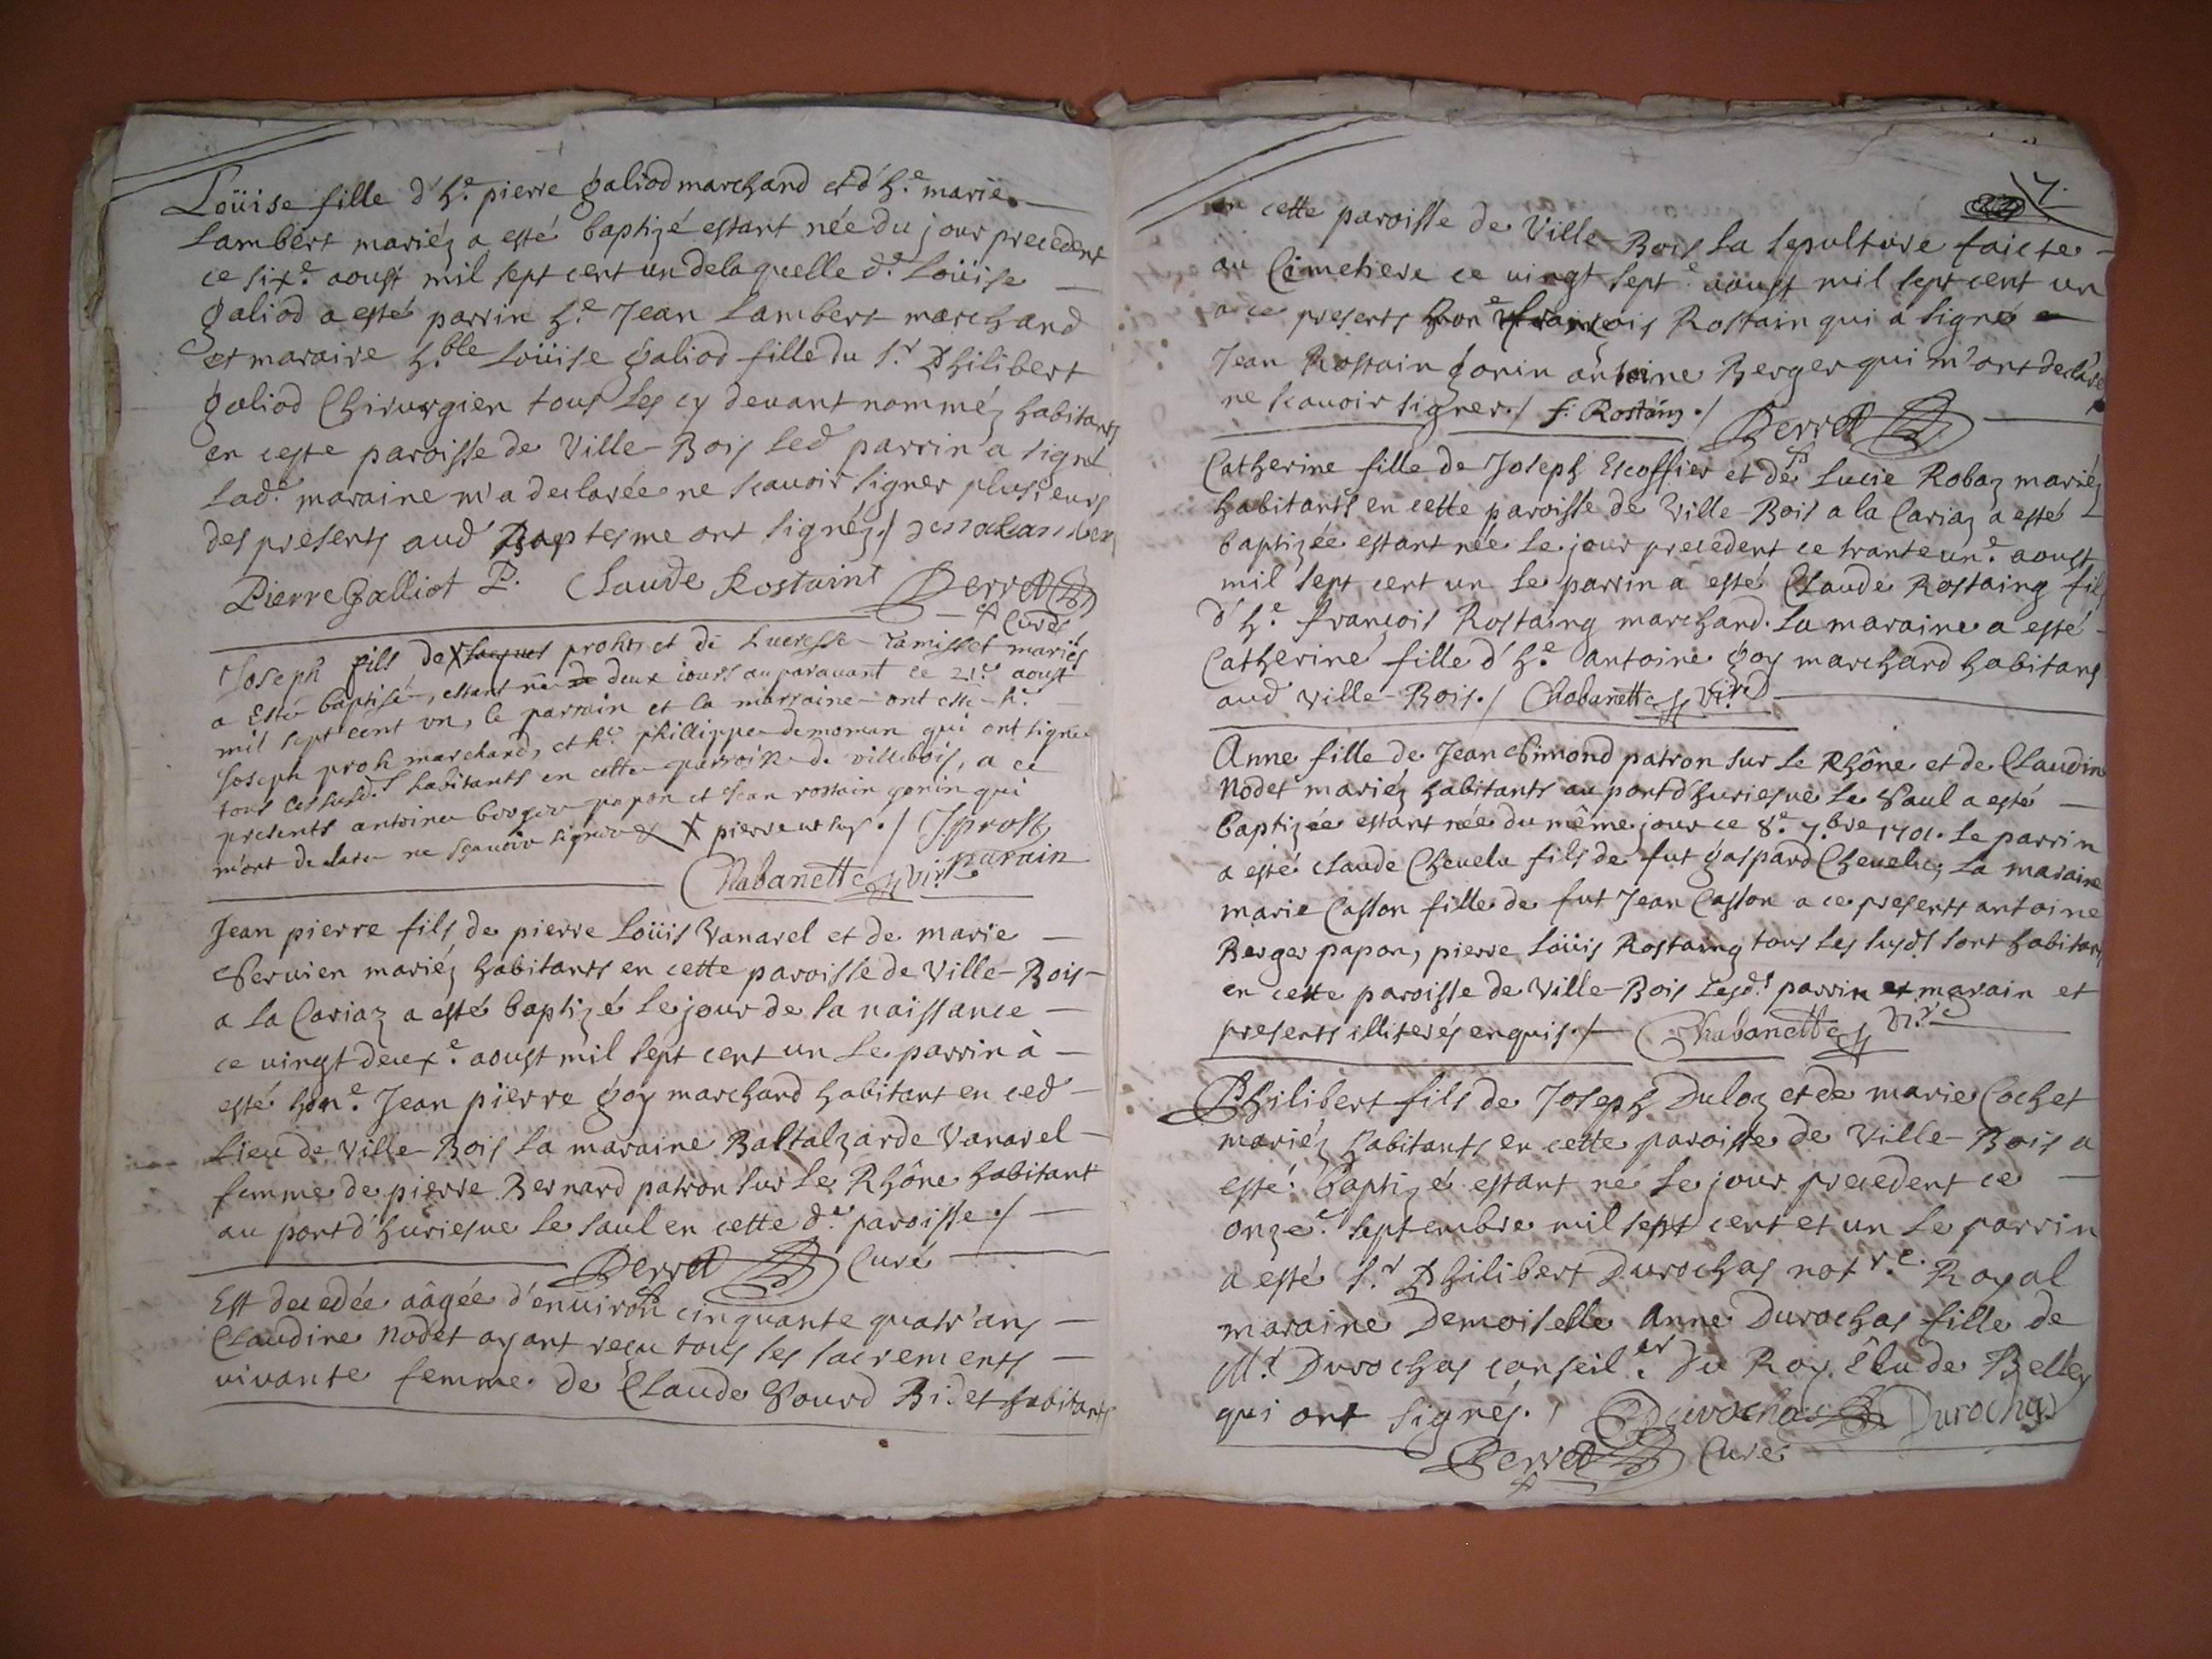 Loüise fille d'h.e pierre galiod marchand et d'h.e marie
Lambert mariéz a esté baptizé estant née du jour precedent
ce sixe. aoust mil sept cent un de laquelle d.e Loüise
galiod a esté parrin h.e Jean Lambert marchand
et maraire h.ble Loüise galiod fille du s.r Philibert
galiod Chirurgien tous les cy devant nomméz habitants
en ceste paroisse de Ville-Bois led parrin a signé
lad.e maraine m'a declarée ne scavoir signer plusieurs
des presents aud Baptesme ont signéz./
Pierre Galliot P. Claude Rostaint Perret
Curé
Joseph fils de X Jacques prohst et de Lucresse Tamisset mariés
a Esté baptisé, estant né de deux iours auparavant ce 21.e aoust
mil sept cent un, le parrain et la marraine ont esté h.e
Joseph proh marchand, et h.e phillippe demoman qui ont signé
tous les susd.s habitants en cette parroisse de villebois, a ce
presents antoine berger papon et Jean rostain gonin qui
m'ont declaré ne sçavoir signer X pierre ./ J prost
parain
Chabanette vir.e
Jean pierre fils de pierre Loüis Vanarel et de marie
Servien mariéz habitants en cette paroisse de Ville-Bois
a la Cariaz a esté baptizé le jour de sa naissance
ce vingt deuxe. aoust mil sept cent un Le parrin à
esté hon.e Jean pierre goy marchand habitant en ced
Lieu de Ville-Bois la maraine Baltalzarde Vanarel
femme de pierre Bernard patron sur le Rhône habitant
au port d'huriesue le saul en cette d.e paroisse./
Perret Curé
Est decedée aâgée d'environ cinquante quatr'ans
Claudine Nodet ayant reçu tous les sacrements
vivante femme de Claude Sourd Bidet habitants
7.
en cette paroisse de Ville-Bois la sepulture faicte
au Cimetiere ce vingt septe aoust mil sept cent un
a ce presents hon.e francois Rostain qui a signé
Jean Rostain gonin antoine Berger qui m'ont declaré
ne scavoir signer./ f. Rostaing./ Perret
Catherine fille de Joseph Escoffier et de Lucie Robaz mariéz
habitants en cette paroisse de Ville-Bois a la Cariaz a esté
baptizée estant née le jour precedent ce trante un.e aoust
mil sept cent un le parrin a esté Claude Rostaing fils
d'h.e françois Rostaing marchand. La maraine a esté
Catherine fille d'h.e antoine goy marchard habitans
aud Ville-Bois./ Chabanette vi.re
Anne fille de Jean Simond patron sur le Rhône et de Claudine
Nodet mariéz habitants au port d'huriesue le Saul a esté
baptizée estant née du même jour ce 8.e 7.bre 1701. Le parrin
a esté claude Chevelu fils de fut gaspard Chevelu; La maraine
marie Caston fille de fut Jean Caston a ce presents antoine
Berger papon, pierre Loüis Rostaing tous les susds sont habitans
en cette paroisse de Ville-Bois lesd.s parrin et marain et
presents illiterés enquis./ Chabanette vi.re
Philibert fils de Joseph Duloz et de marie Cochet
mariéz habitants en cette paroisse de Ville-Bois a
esté baptizé estant né le jour precedent ce
onze.e septembre mil sept cent et un Le parrin
a esté s.r Philibert Durochas not.re Royal
maraine Demoiselle Anne Durochas fille de
M.r Durochas conseil.er du Roy Élu de Belley
qui ont signés./ Durochas Durochas
Perret Curé